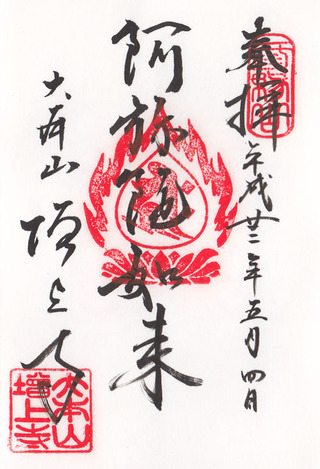 奉拝 平成廿三年五月四日
阿弥陀如来
大本山 増上寺
大本山
増上寺